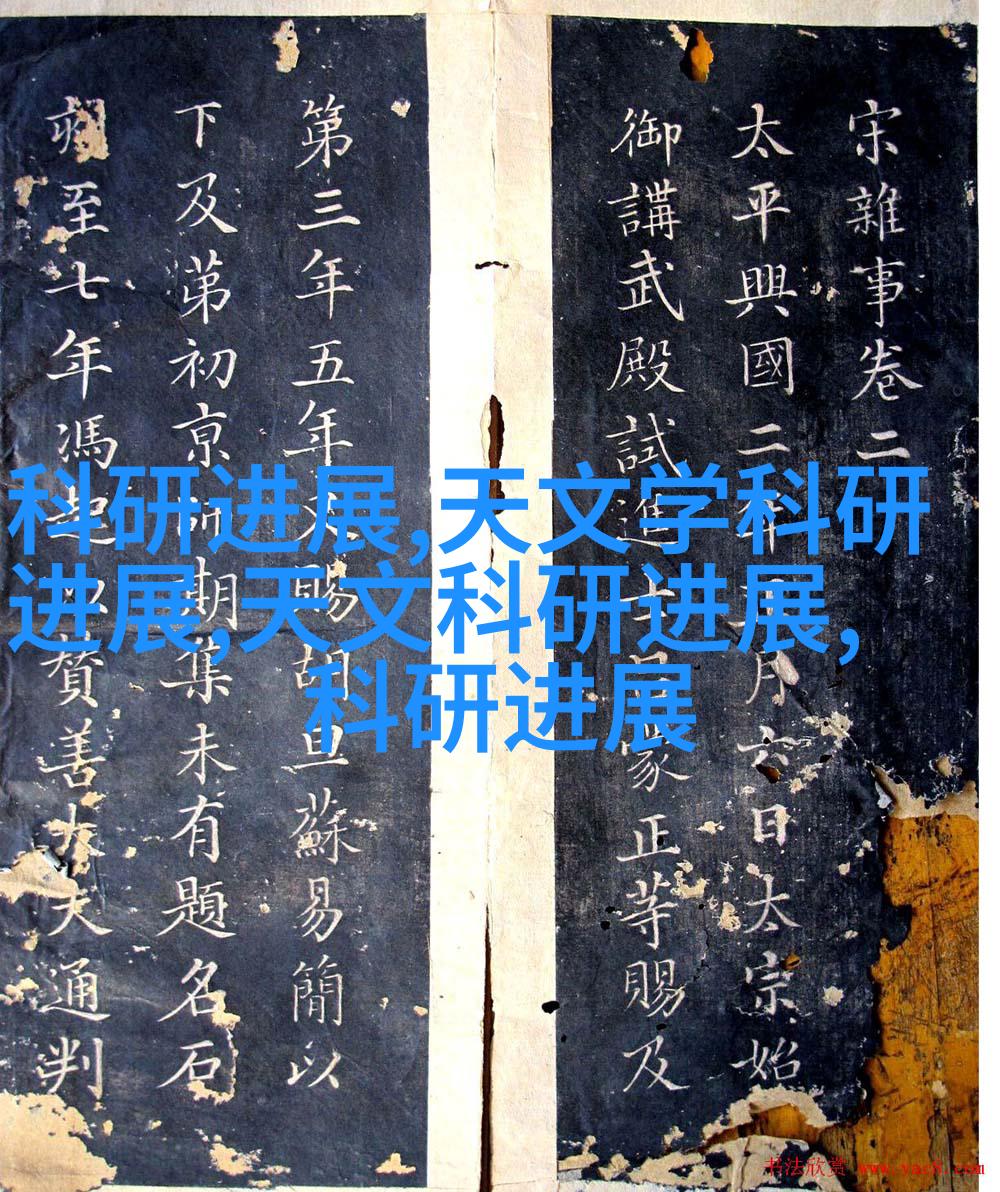 宋雜事卷二
太平興國二年月六日太宗始
御講武殿試進士呂蒙正等賜及
第三年五年又賜胡旦蘇易簡以
下及苐初京師期集未有題名石
至七年馮起以賛善大夫通判
科研进展,天文学科研
进展,天文科研进展,
科研进展
书法欣赏 www.yac8.com